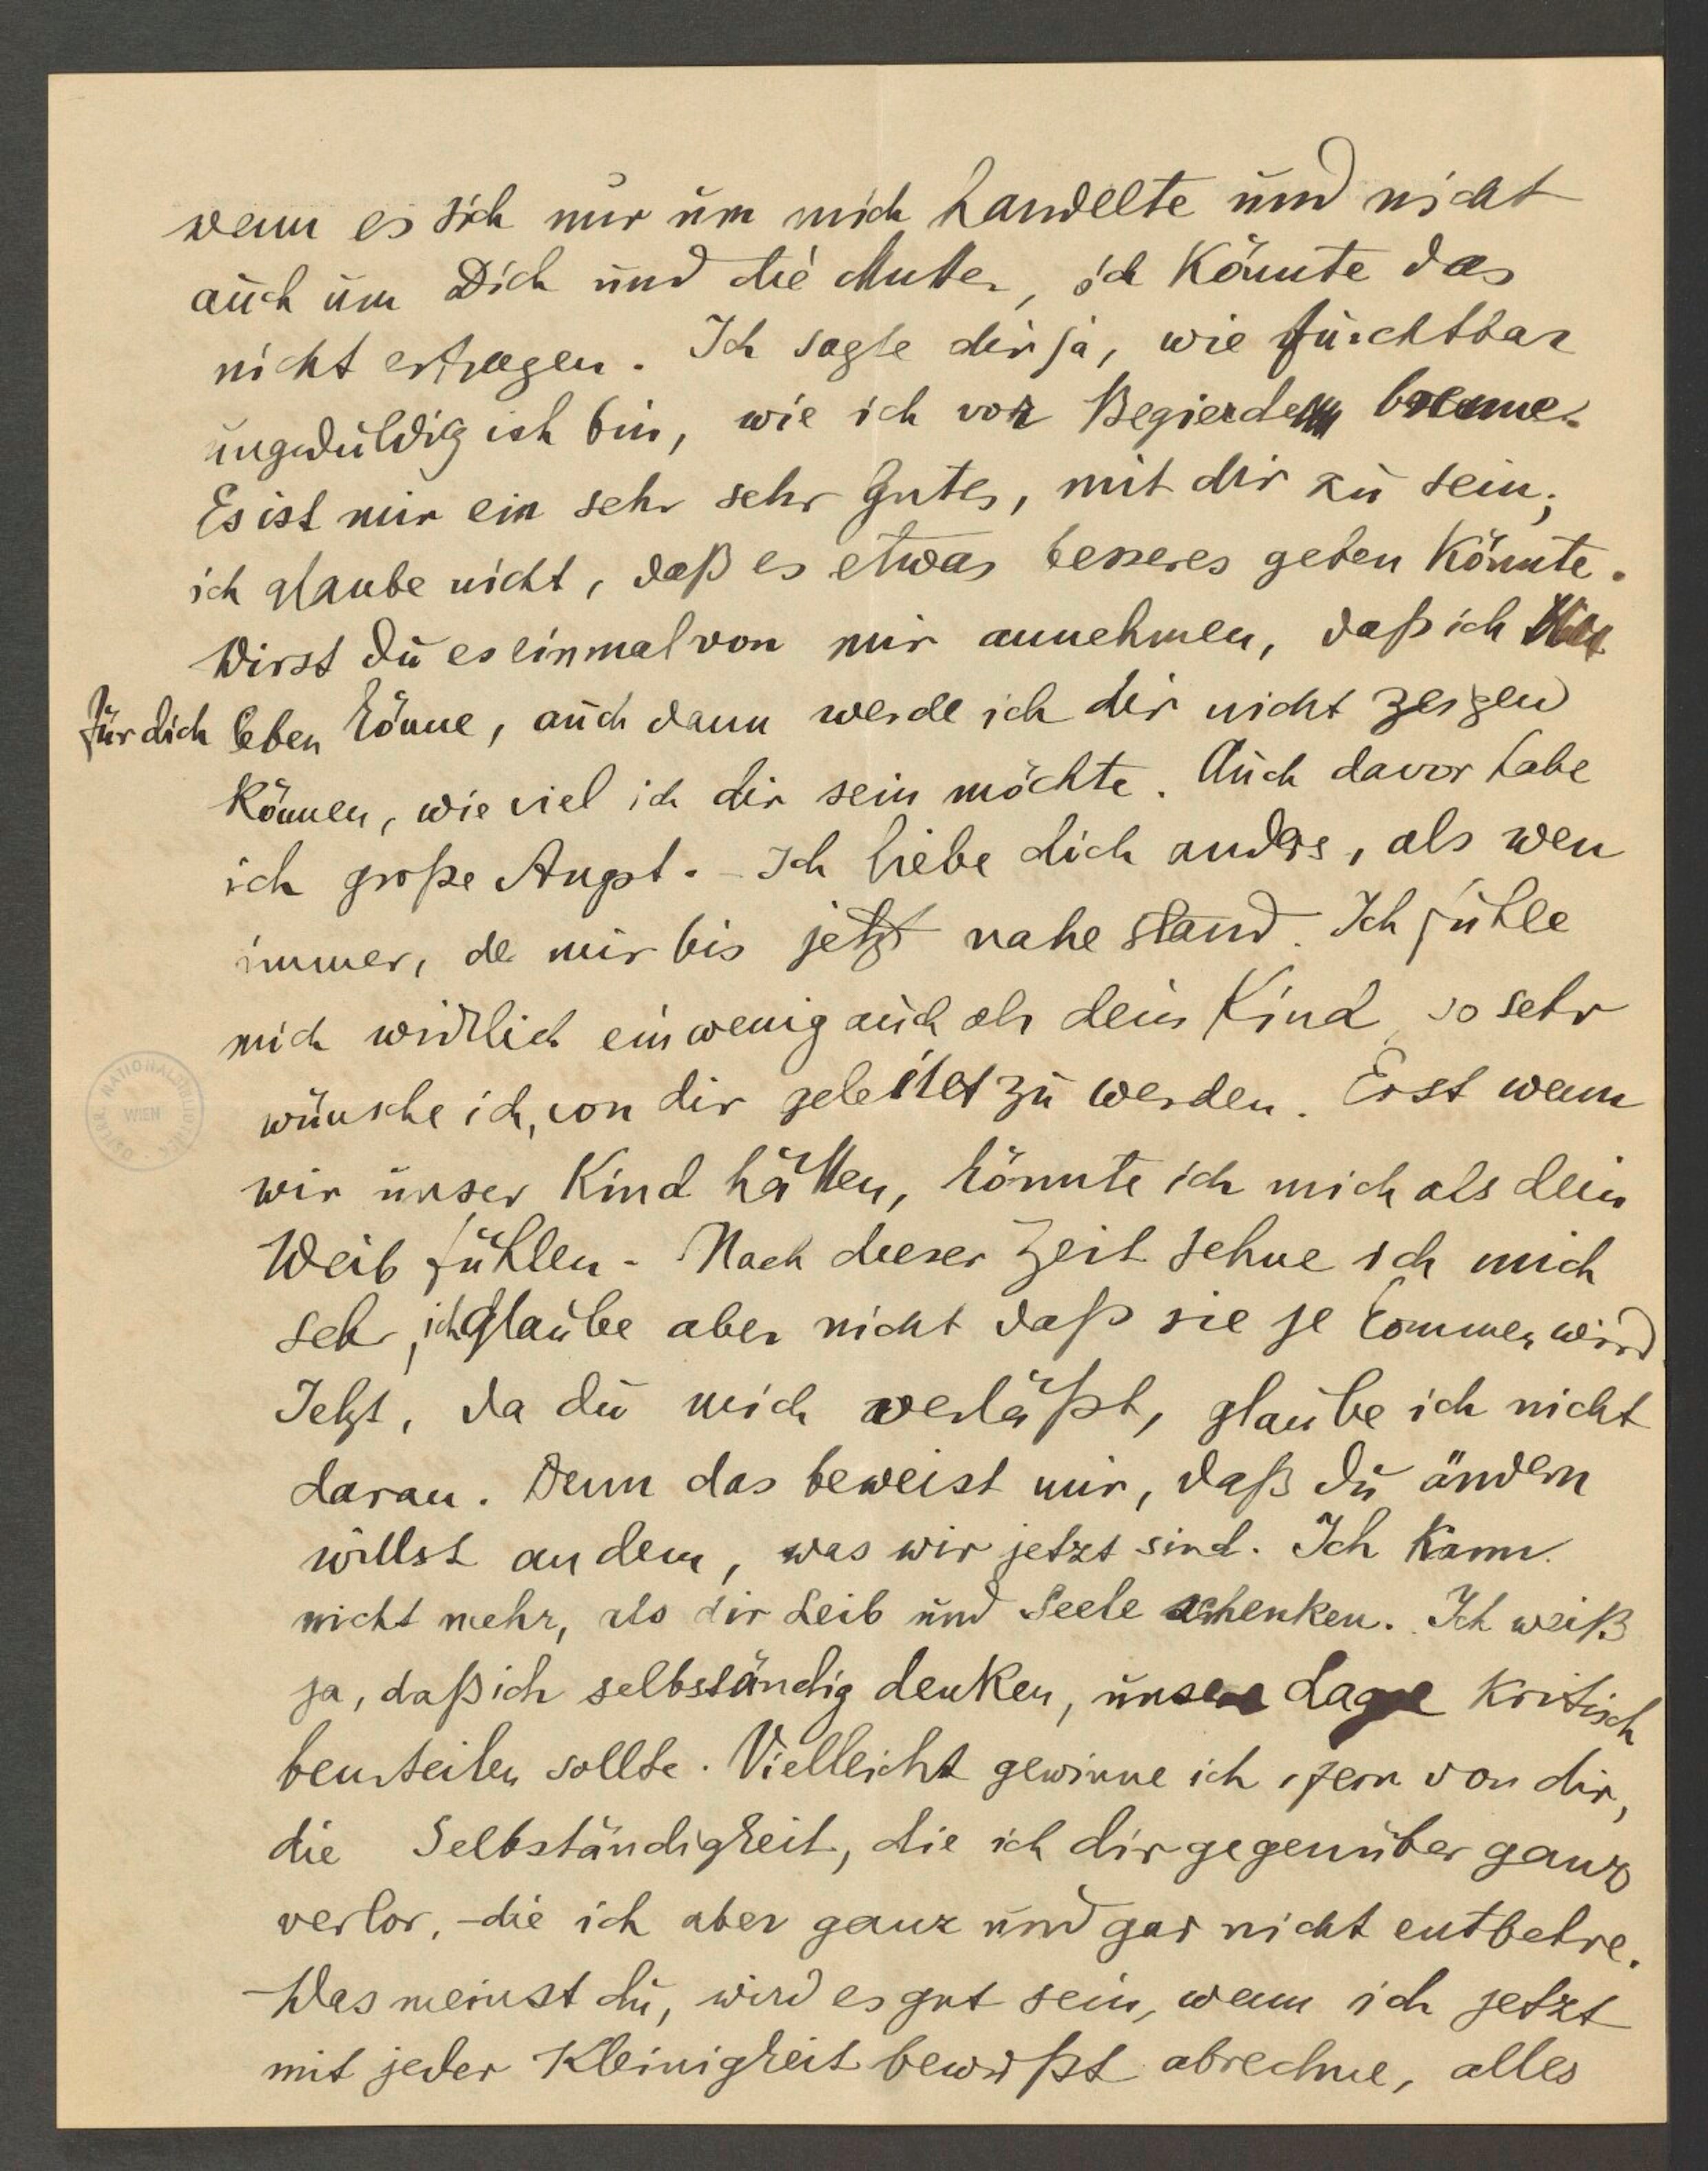 wenn es sich nur um mich handelte und nicht
auch um Dich und die Mutter, ich könnte das
nicht ertragen. Ich sagte dir ja, wie furchtbar
ungeduldig ich bin, wie ich vor Begierde brenne.
Es ist mir ein sehr sehr Gutes, mit dir zu sein;
ich glaube nicht, daß es etwas besseres geben könnte.
Wirst du es einmal von mir annehmen, daß ich
für dich leben könne, auch dann werde ich dir nicht zeigen
können, wie viel ich dir sein möchte. Auch davor habe
ich große Angst. - Ich liebe dich anders, als wen
immer, de mir bis jetzt nahe stand. Ich fühle
mich wirklich ein wenig auch als dein Kind, so sehr
wünsche ich, von dir geleitet zu werden. Erst wenn
wir unser Kind hätten, könnte ich mich als dein
Weib fühlen - Nach dieser Zeit sehne ich mich
sehr, ich glaube aber nicht daß sie je kommen wird
Jetzt, da du mich verläßt, glaube ich nicht
daran. Denn das beweist mir, daß du ändern
willst an dem, was wir jetzt sind. Ich kann
nicht mehr, als dir Leib und Seele schenken. Ich weiß
ja, daß ich selbständig denken, unsere Lage kritisch
beurteilen sollte. Vielleicht gewinne ich, fern von dir,
die Selbständigkeit, die ich dir gegenüber ganz
verlor, - die ich aber ganz und gar nicht entbehre.
- Was meinst du, wird es gut sein, wenn ich jetzt
mit jeder Kleinigkeit bewußt abrechne, alles
ÖSTERR. NATIONALBIBLIOTHEK
WIEN